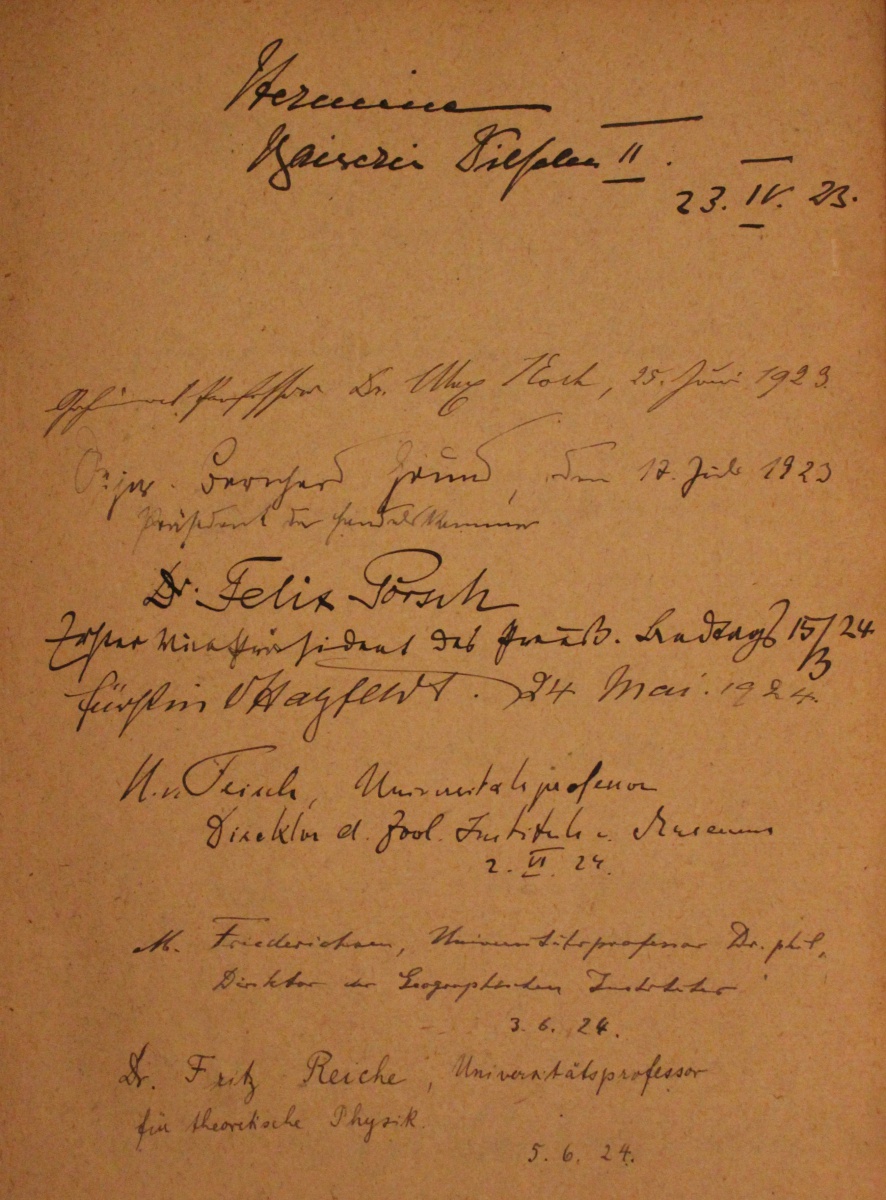 Hermine
Kaiserin Wilhelm II.
23. IV. 23.
Professor Dr. Max Koch, 25. Juni 1923
Bernhard Grund, den 17. Juli 1923
Präsident der Handelskammer
Dr. Felix Porsch
Erster Vizepräsident des Preuß. Landtags 15/3 24
Fürstin Hatzfeldt. 24 Mai. 1924.
Universitätsprofessor
Direktor d. Zool. Instituts u. Museums
2. VI. 24.
M. Friederichsen, Universitätsprofessor Dr. phil,
Direktor des Geographischen Institutes
3. 6. 24.
Dr. Fritz Reiche, Universitätsprofessor
für theoretische Physik.
5. 6. 24.